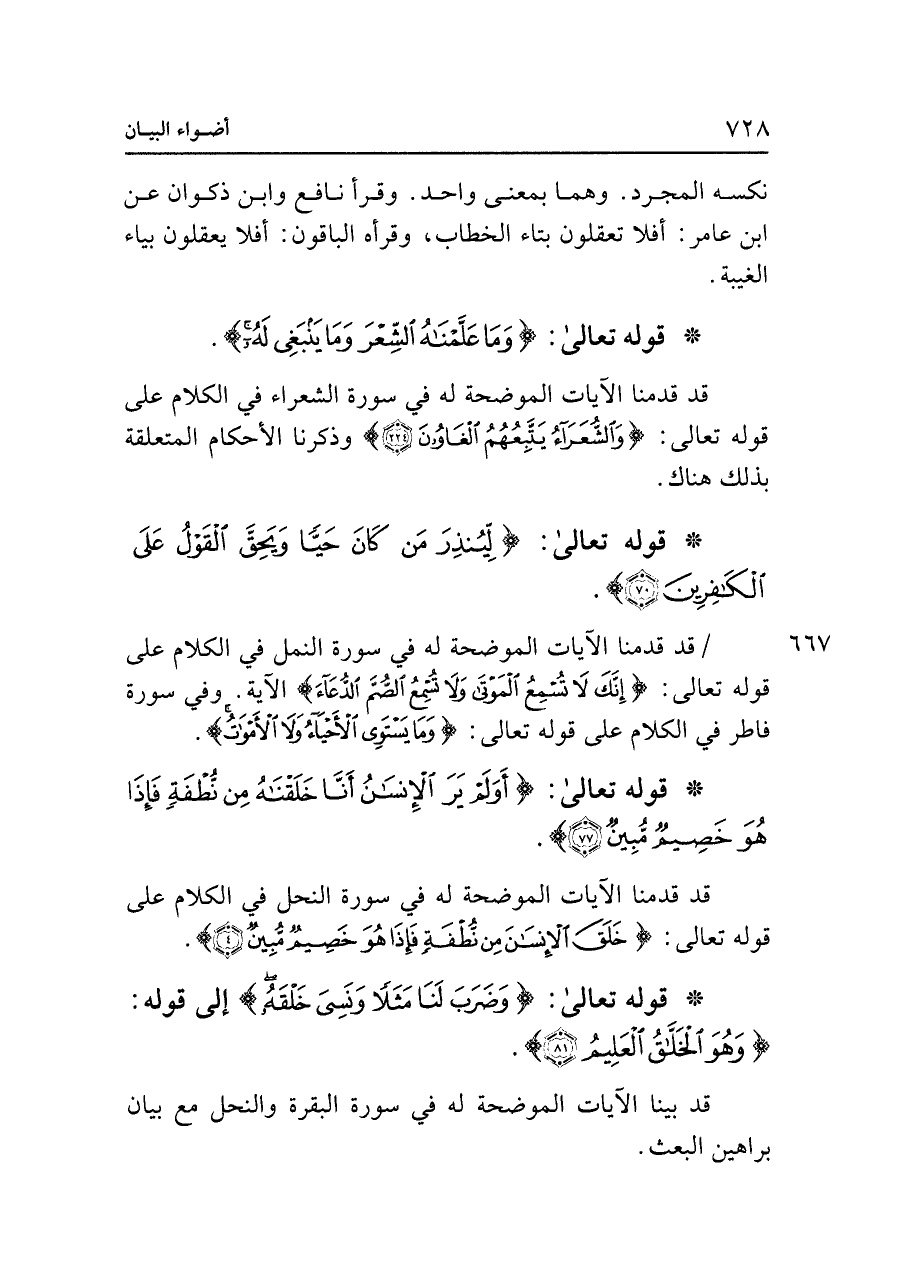 ٧٢٨ أضواء البيان
نكسه المجرد. وهما بمعنى واحد. وقرأ نافع وابن ذكوان عن
ابن عامر: أفلا تعقلون بتاء الخطاب، وقرأه الباقون: أفلا يعقلون بياء
الغيبة.
* قوله تعالىٰ: ﴿وَمَا عَلَّمْنَٰهُ ٱلشِّعْرَ وَمَا يَنۢبَغِى لَهُۥٓۚ﴾.
قد قدمنا الآيات الموضحة له في سورة الشعراء في الكلام على
قوله تعالى: ﴿وَٱلشُّعَرَآءُ يَتَّبِعُهُمُ ٱلْغَاوُۥنَ ٢٢٤﴾ وذكرنا الأحكام المتعلقة
بذلك هناك.
* قوله تعالىٰ: ﴿لِّيُنذِرَ مَن كَانَ حَيًّا وَيَحِقَّ ٱلْقَوْلُ عَلَى
ٱلْكَٰفِرِينَ ٧٠﴾.
٦٦٧ / قد قدمنا الآيات الموضحة له في سورة النمل في الكلام على
قوله تعالى: ﴿إِنَّكَ لَا تُسْمِعُ ٱلْمَوْتَىٰ وَلَا تُسْمِعُ ٱلصُّمَّ ٱلدُّعَآءَ﴾ الآية. وفي سورة
فاطر في الكلام على قوله تعالى: ﴿وَمَا يَسْتَوِى ٱلْأَحْيَآءُ وَلَا ٱلْأَمْوَٰتُۚ﴾.
* قوله تعالىٰ: ﴿أَوَلَمْ يَرَ ٱلْإِنسَٰنُ أَنَّا خَلَقْنَٰهُ مِن نُّطْفَةٍ فَإِذَا
هُوَ خَصِيمٌ مُّبِينٌ ٧٧﴾.
قد قدمنا الآيات الموضحة له في سورة النحل في الكلام على
قوله تعالى: ﴿خَلَقَ ٱلْإِنسَٰنَ مِن نُّطْفَةٍ فَإِذَا هُوَ خَصِيمٌ مُّبِينٌ ٤﴾.
* قوله تعالىٰ: ﴿وَضَرَبَ لَنَا مَثَلًا وَنَسِىَ خَلْقَهُۥۖ﴾ إلى قوله:
﴿وَهُوَ ٱلْخَلَّٰقُ ٱلْعَلِيمُ ٨١﴾.
قد بينا الآيات الموضحة له في سورة البقرة والنحل مع بيان
براهين البعث.